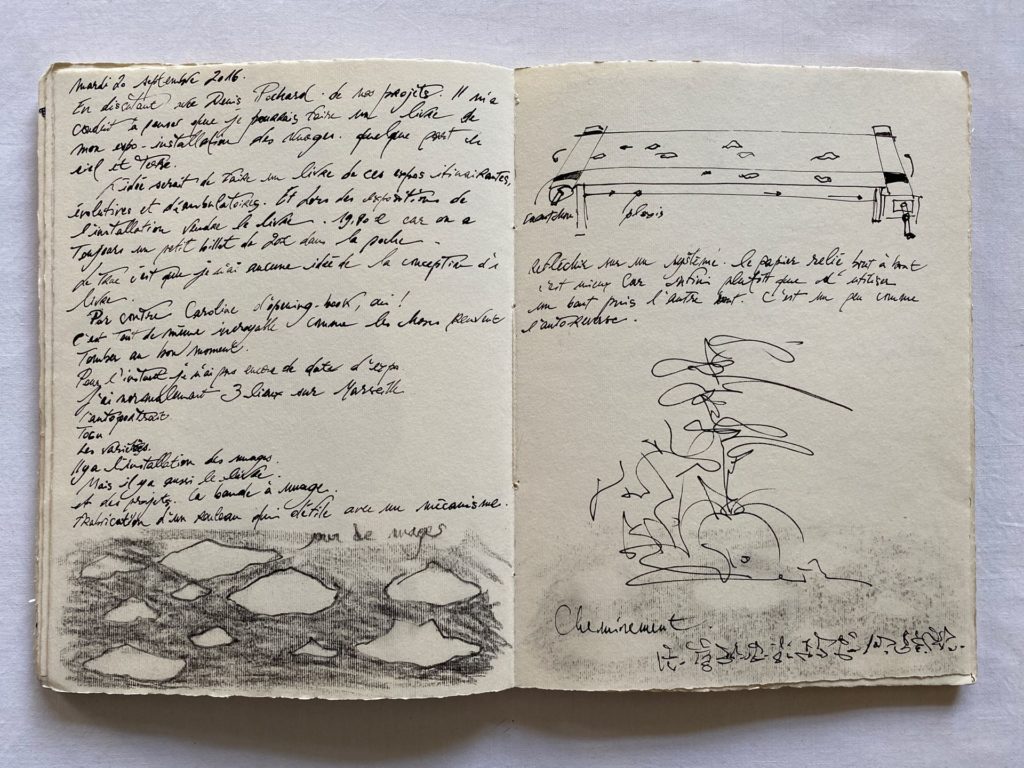 mardi 20 septembre 2016.
En discutant avec Denis Pochard de nos projets. Il m'a
conduit à penser que je pourrais faire un livre de
mon expo-installation des nuages. quelque part le
ciel et Terre.
L'idée serait de faire un livre de ces expos itinairantes,
évolatives et déambulatoires. Et lors des expositions de
l'installation vendre le livre. 19,80 € car on a
Toujours un petit billet de 20€ dans la poche.
Le truc c'est que je n'ai aucune idée de la conception d'1
livre.
Par contre Caroline d'opening-book, oui !
C'est tout de même incroyable comme les choses peuvent
Tomber au bon moment.
Pour l'instant je n'ai pas encore de dates d'expo
J'ai normalement 3 lieux sur Marseille
l'autoportrait
Les variétés.
Il y a l'installation des nuages
Mais il y a aussi le livre
et des projets. la bande à nuage.
Fabrication d'un rouleau qui défile avec un mécanisme.
de nuages
caoutchou plexis
Réfléchir sur un système. le papier relié bout à bout
c'est mieux car infini plutôt que d'utiliser
un bout puis l'autre bout. C'est un peu comme
l'autoreverse.
Cheminement